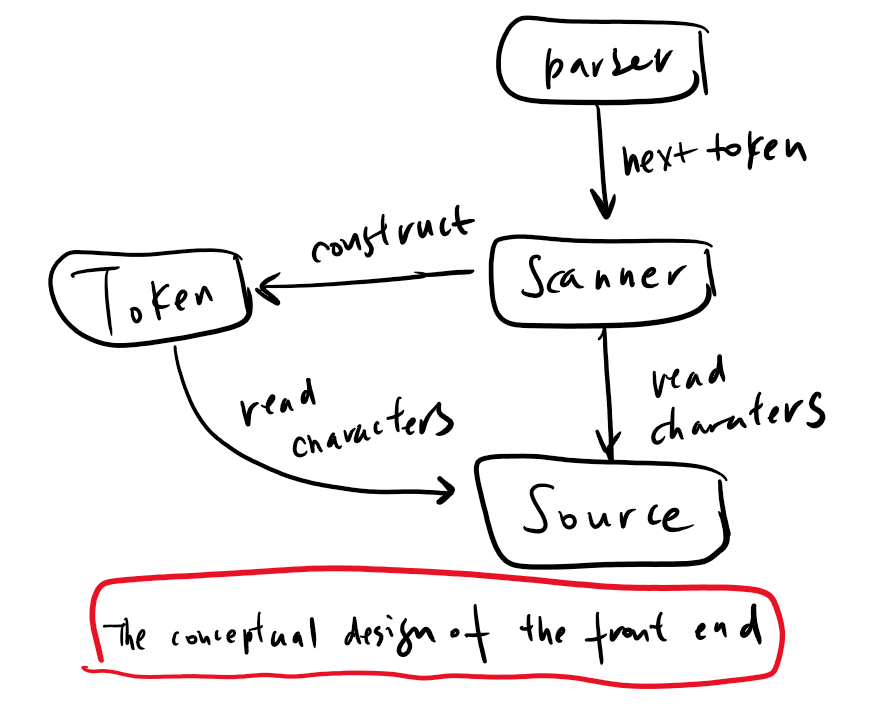 parser
next token
construct
Scanner
Token
read
characters
read
charaters
Source
The conceptual design of the front end